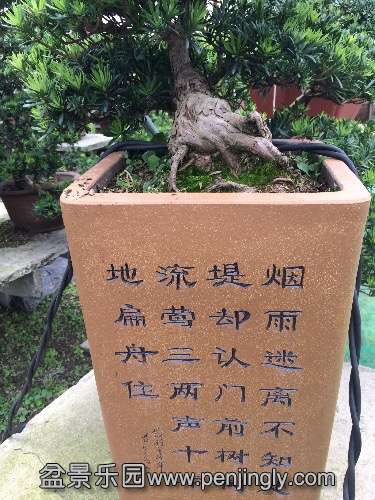 烟雨迷离不知
堤却认门前树
流莺三两声十
地扁舟住
盆景乐园www.penjingly.com